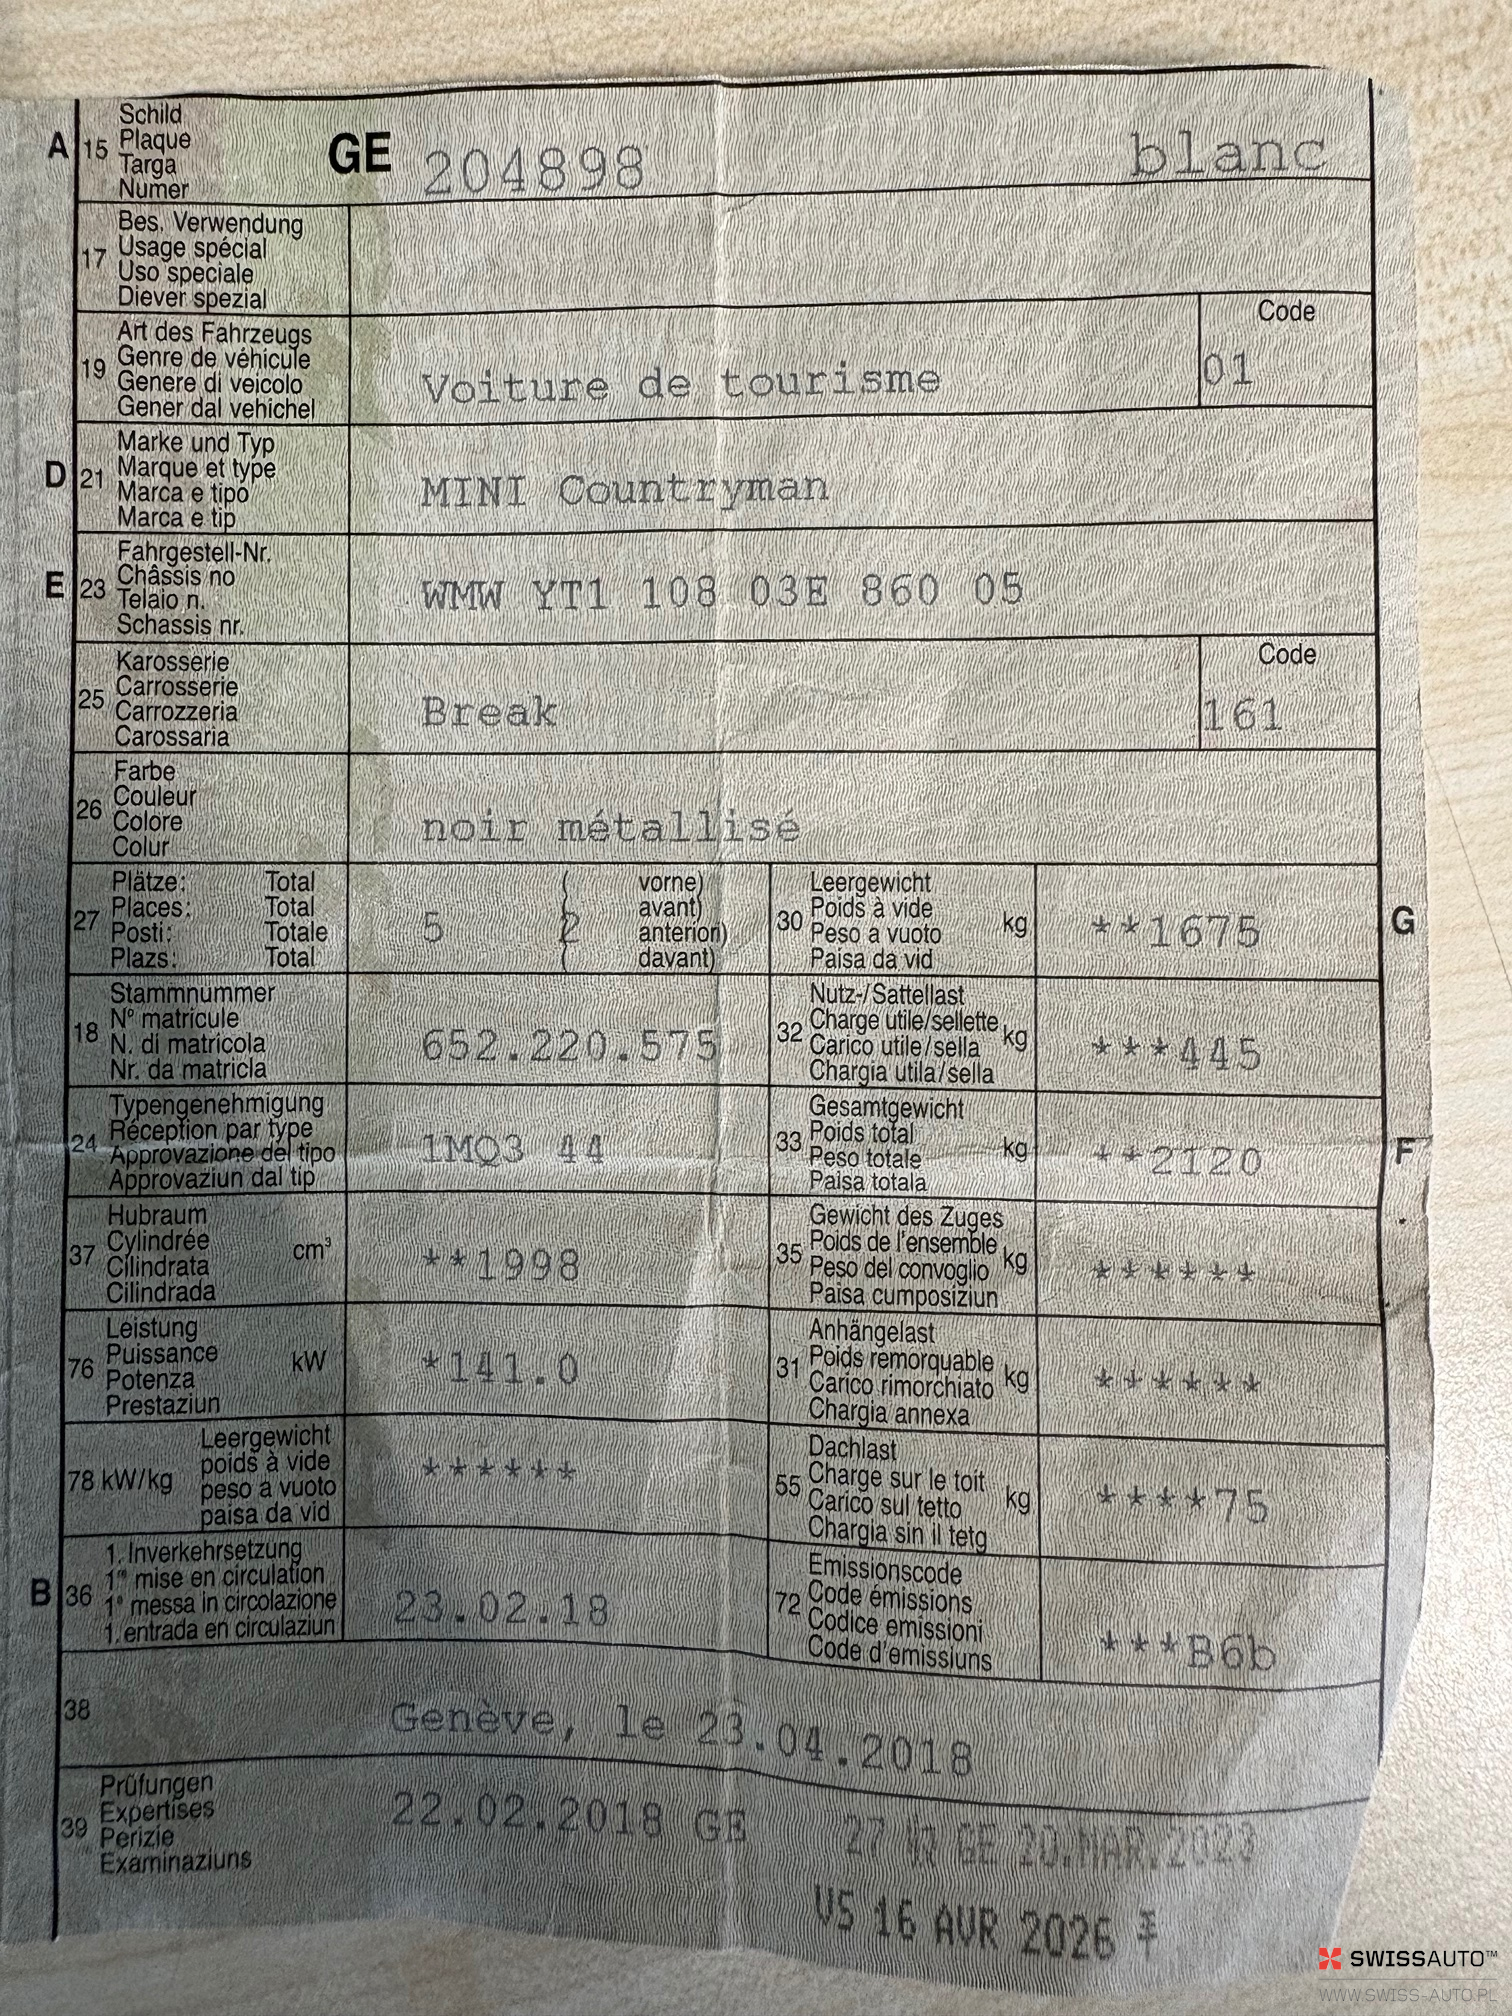 A 15 Schild
Plaque
Targa
Numer
GE 204898 blanc
17 Bes. Verwendung
Usage spécial
Uso speciale
Diever spezial
19 Art des Fahrzeugs
Genre de véhicule
Genere di veicolo
Gener dal vehichel
Voiture de tourisme
Code
01
D 21 Marke und Typ
Marque et type
Marca e tipo
Marca e tip
MINI Countryman
E 23 Fahrgestell-Nr.
Châssis no
Telaio n.
Schassis nr.
WMW YT1 108 03E 860 05
25 Karosserie
Carrosserie
Carrozzeria
Carossaria
Break
Code
161
26 Farbe
Couleur
Colore
Colur
noir métallisé
27 Plätze: Total
Places: Total
Posti: Totale
Plazs: Total
5 2
( vorne)
( avant)
( anteriori)
( davant)
30 Leergewicht
Poids à vide
Peso a vuoto
Paisa da vid
kg **1675
G
18 Stammnummer
N° matricule
N. di matricola
Nr. da matricla
652.220.575
32 Nutz-/Sattellast
Charge utile/sellette
Carico utile/sella
Chargia utila/sella
kg ***445
24 Typengenehmigung
Réception par type
Approvazione del tipo
Approvaziun dal tip
1MQ3 44
33 Gesamtgewicht
Poids total
Peso totale
Paisa totala
kg **2120
F
37 Hubraum
Cylindrée
Cilindrata
Cilindrada
cm³ **1998
35 Gewicht des Zuges
Poids de l'ensemble
Peso del convoglio
Paisa cumposiziun
kg ******
76 Leistung
Puissance
Potenza
Prestaziun
kW *141.0
31 Anhängelast
Poids remorquable
Carico rimorchiato
Chargia annexa
kg ******
78 kW/kg
Leergewicht
poids à vide
peso a vuoto
paisa da vid
******
55 Dachlast
Charge sur le toit
Carico sul tetto
Chargia sin il tetg
kg ****75
B 36 1. Inverkehrsetzung
1re mise en circulation
1a messa in circolazione
1. entrada en circulaziun
23.02.18
72 Emissionscode
Code émissions
Codice emissioni
Code d'emissiuns
***B6b
38 Genève, le 23.04.2018
39 Prüfungen
Expertises
Perizie
Examinaziuns
22.02.2018 GE
27 GE 20.MAR.2023
VS 16 AVR 2026
SWISSAUTO™
WWW.SWISS-AUTO.PL